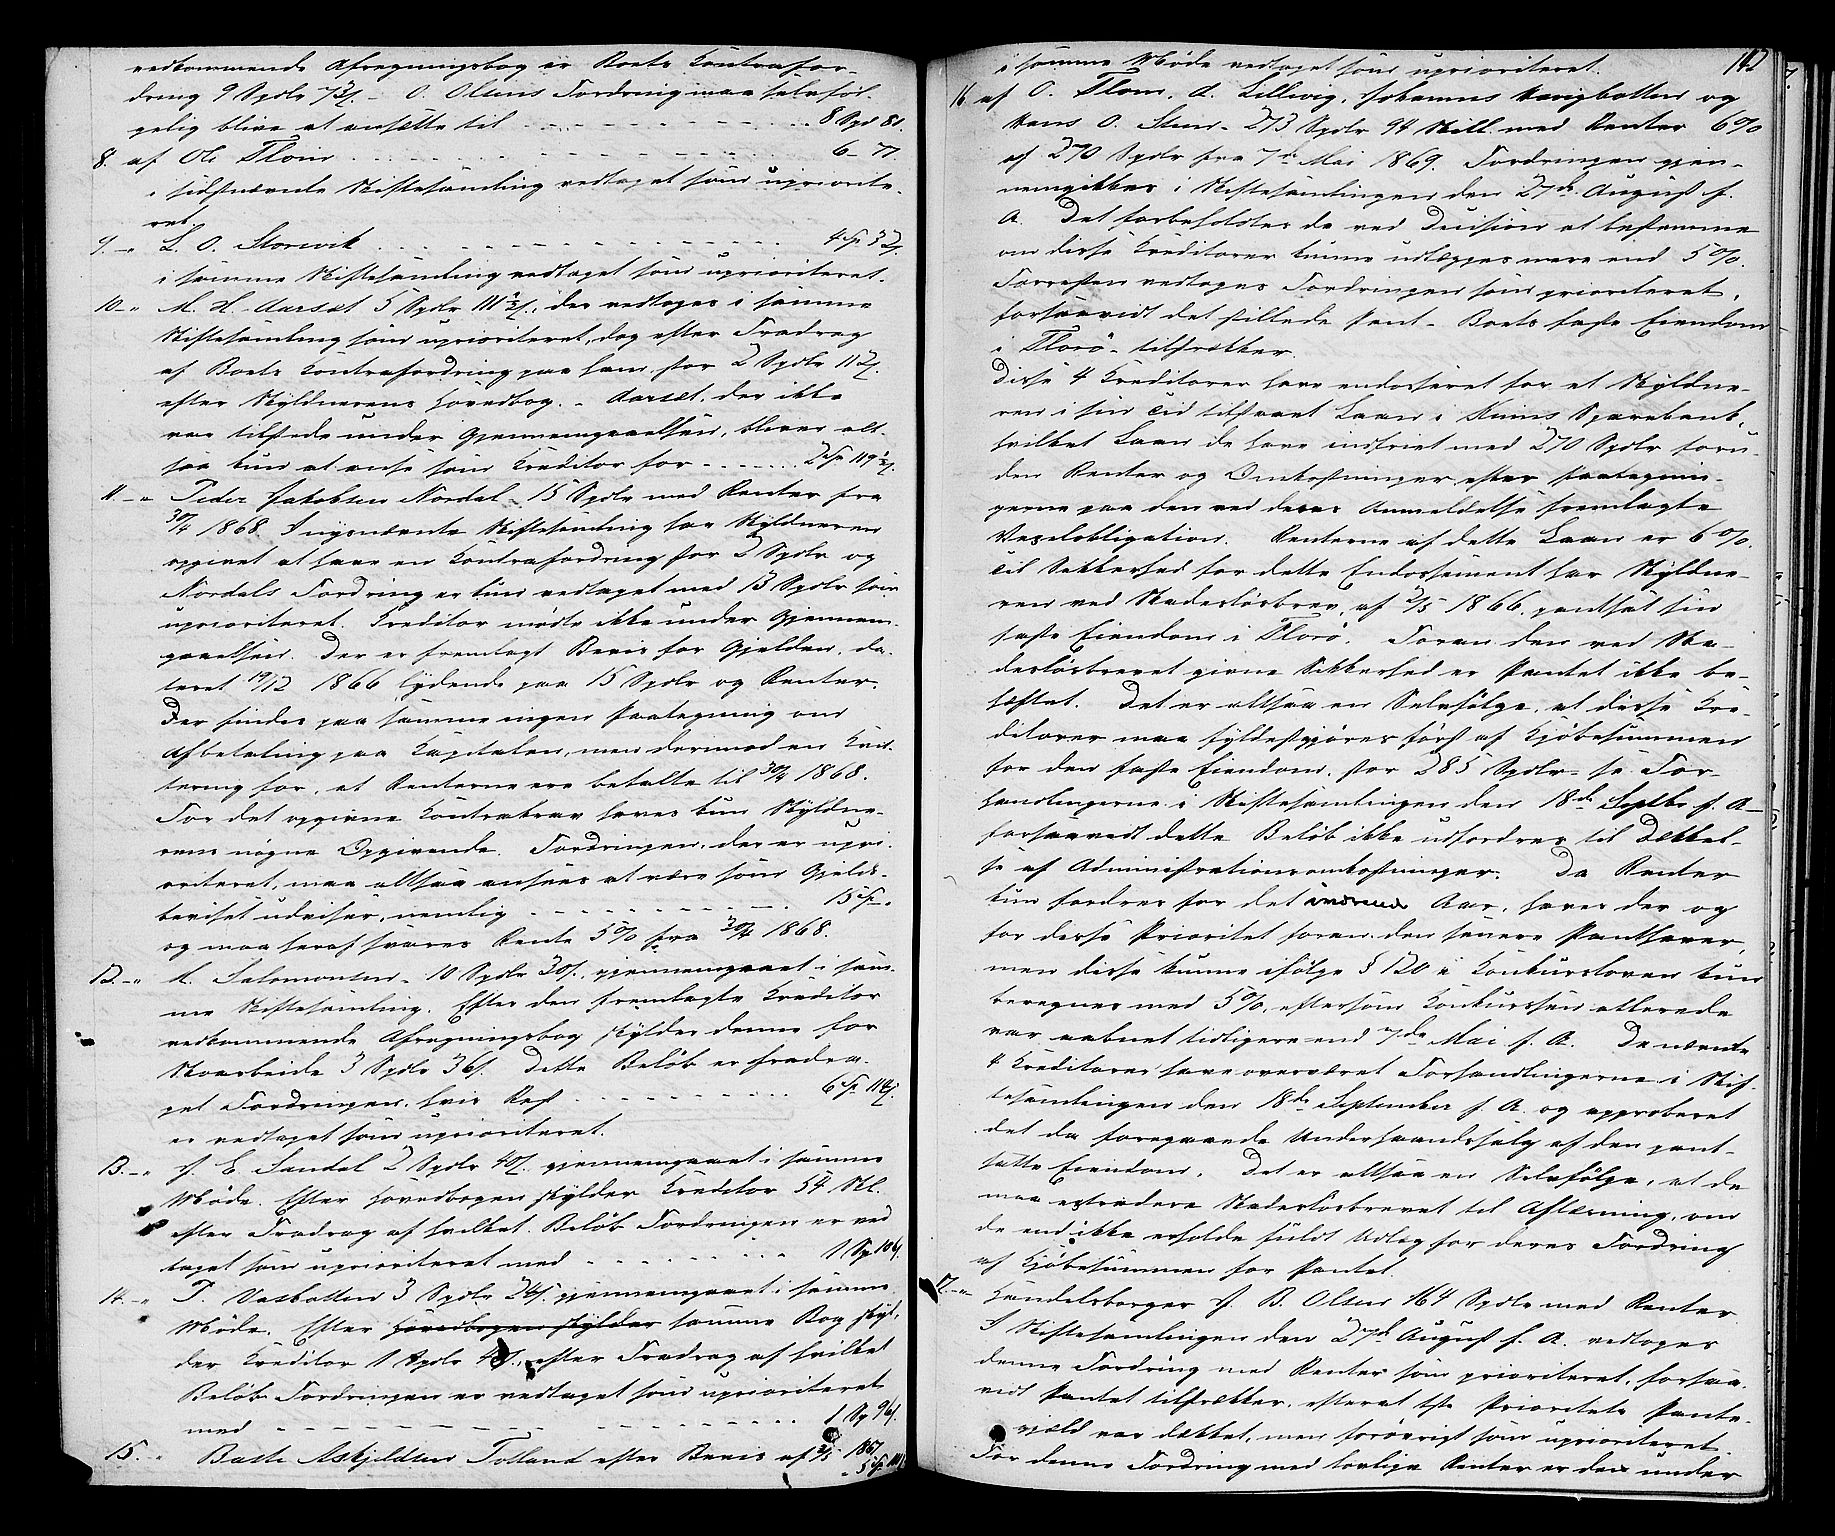 vedkommende Afregningsbog er Boets Contrafor-
dring 9 Spdlr 73 s. – O. Olsens Fordring maa selvføl-
gelig blive at ansætte til 8 Spd 81.
8. af Ole Flom 6 – 77.
i sidstnævnte Skiftesamling vedtaget som upriorite-
ret.
9. – " L. O. Storevik 4 Sp 32 s.
i samme Skiftesamling vedtaget som uprioriteret.
10 – " M. H. Aarset 5 Spdlr 111 ½ s., der vedtoges i samme
Skiftesamling som uprioriteret, dog efter Fradrag
af Boets Contrafordring paa ham stor 2 Spdlr 112 s.
efter Skyldnerens Hovedbog. – Aarset, der ikke
var tilstede under Gjennemgaaelsen, bliver alt-
saa kun at anse som Creditor for 2 Sp 119 ½ s.
11 – " Peder Jakobsen Nordal – 15 Spdlr med Renter fra
30/4 1868. I nysnævnte Skiftesamling har Skyldneren
opgivet at have en Contrafordring stor 2 Spdlr og
Nordals Fordring er kun vedtaget med 13 Spdlr som
uprioriteret. Creditor mødte ikke under Gjennem-
gaaelsen. Der er fremlagt Bevis for Gjelden, da-
teret 19/12 1866 lydende paa 15 Spdlr og Renter.
Der findes paa samme ingen Paategning om
Afbetaling paa Capitalen, men derimod en Kvit-
tering for, at Renterne ere betalte til 30/4 1868.
For det opgivne Contrakrav haves kun Skyldne-
rens nøgne Opgivende. Fordringen, der er upri-
oriteret, maa altsaa ansees at være som Gjelds-
beviset udviser, nemlig 15 Sp – "
og maa heraf svares Rente 5 % fra 30/4 1868.
12. – " K. Salomonsen – 10 Spdlr 30 s., gjennemgaaet i sam-
me Skiftesamling. Efter den fremlagte Creditor
vedkommende Afregningsbog skylder denne for
Skoarbeide 3 Spdlr 36 s. Dette Beløb er fradra-
get Fordringen, hvis Rest 6 Sp 114 s.
er vedtaget som uprioriteret.
13. – " J. E. Sandal 2 Spdlr 40 s. gjennemgaaet i samme
Møde. Efter Hovedbogen skylder Creditor 54 Sk.
efter Fradrag af hvilket Beløb Fordringen er ved
taget som uprioriteret med 1 Sp 106 s.
14. – " P. Vasbotten 3 Spdlr 24 s. gjennemgaaet i samme
Møde. Efter Hovedbogen skylder samme Bog skyl-
der Creditor 1 Spdlr 48 s., efter Fradrag af hvilket
Beløb Fordringen er vedtaget som uprioriteret
med 1 Sp 96 s.
15. " Baste Askjeldsen Tolland efter Bevis af 1867
i samme Møde vedtaget som uprioriteret.
142
16 af O. Flom, A. Lillevig, Johannes Havigbotten og
Hans O. Steen – 273 Spdlr 94 Skill. med Renter 6 %
af 270 Spdlr fra 7de Mai 1869. Fordringen gjen-
nemgikkes i Skiftesamlingen den 27de August f.
A. Det forbeholdtes de ved Decision at bestemme
om disse Creditorer kunne udlægges mere end 5 %.
Forresten vedtoges Fordringen som prioriteret,
forsaavidt det stillede Pant – Boets faste Eiendom
i Florø – tilstrækker.
Disse 4 Creditorer have endosseret for et Skyldne-
ren i sin Tid tilstaaet Laan i Kinns Sparebank,
hvilket Laan de have indfriet med 270 Spdlr foru-
den Renter og Omkostninger efter Paategnin-
gerne paa den ved deres Anmeldelse fremlagte
Vexelobligation. Renterne af dette Laan er 6 %.
Til Sikkerhed for dette Endossement har Skyldne-
ren ved Skadesløsbrev af 2/5 1866 pantsat sin
faste Eiendom i Florø. Foran den ved Ska-
desløsbrevet givne Sikkerhed er Pantet ikke be-
hæftet. Det er altsaa en Selvfølge, at disse Cre-
ditorer maa fyldestgjøres først af Kjøbesummen
for den faste Eiendom, stor 285 Spdlr – se For-
handlingerne i Skiftesamlingen den 18de Septbr f. A –
forsaavidt dette Beløb ikke udfordres til Dækkel-
se af Administrationsomkostninger. Da Renter
kun fordres for det Aar, haves der og
for disse Prioritet foran den senere Panthaver,
men disse kunne ifølge § 120 i Konkursloven kun
beregnes med 5 %, eftersom Konkursen allerede
var aabnet tidligere end 7de Mai f. A. De nævnte
4 Creditorer have overværet Forhandlingerne i Skif-
tesamlingen den 18de September f. A. og approberet
det da foregaaede Underhaandssalg af den pant-
satte Eiendom. Det er altsaa en Selvfølge, at de
maa extradere Skadesløsbrevet til Aflæsning, om
de end ikke erholde fuldt Udlæg for deres Fordring
af Kjøbesummen for Pantet.
17. – " Handelsborger J. B. Olsen 164 Spdlr med Renter
I Skiftesamlingen den 27de August f. A. vedtoges
denne Fordring med Renter som prioriteret, forsaa-
vidt Pantet tilstrækker, efterat 1ste Prioritets Pante-
gjæld var dækket, men forøvrigt som uprioriteret.
For denne Fordring med lovlige Renter er der under